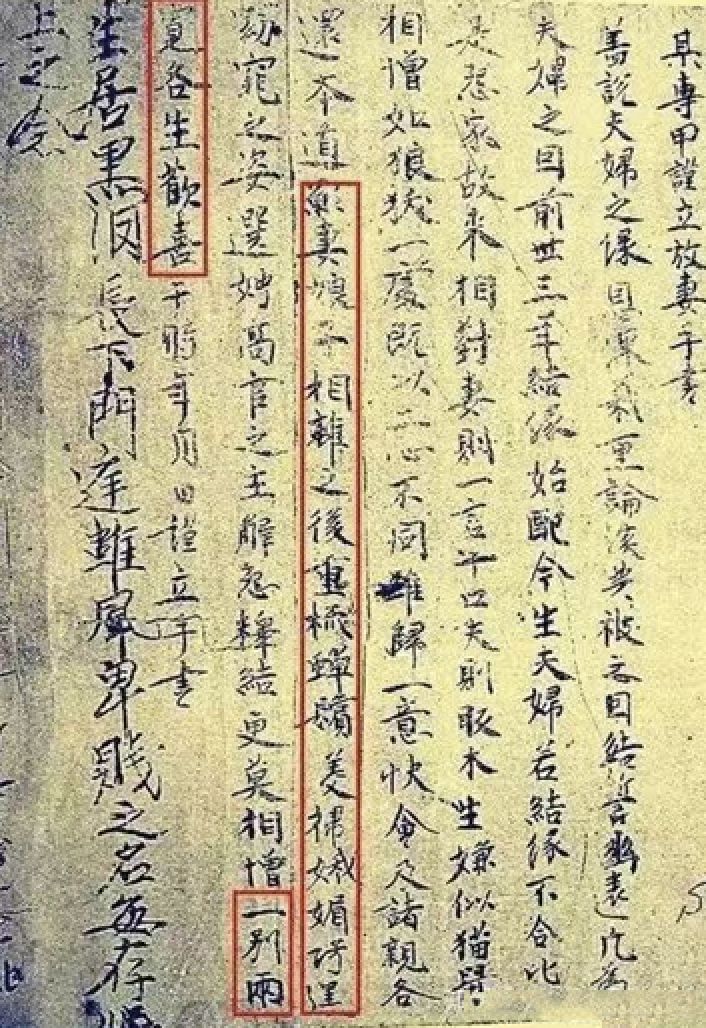 某專甲謹立放妻手書
盖說夫婦之緣恩深義重論談共被之因結誓幽遠凡為
夫婦之因前世三年結緣始配今生夫婦若結緣不合比
是怨家故來相對妻則一言十口夫則反木生嫌似猫鼠
相憎如狼一處既以二心不同難歸一意快會及諸親各
還本道願妻娘子相離之後重梳蟬鬢美掃娥媚巧逞
窈窕之姿選娉高官之主解怨釋結更莫相憎一別兩
寬各生歡喜于時年月日謹立手書
生居黑下門逢離卑賤之名存
上之念